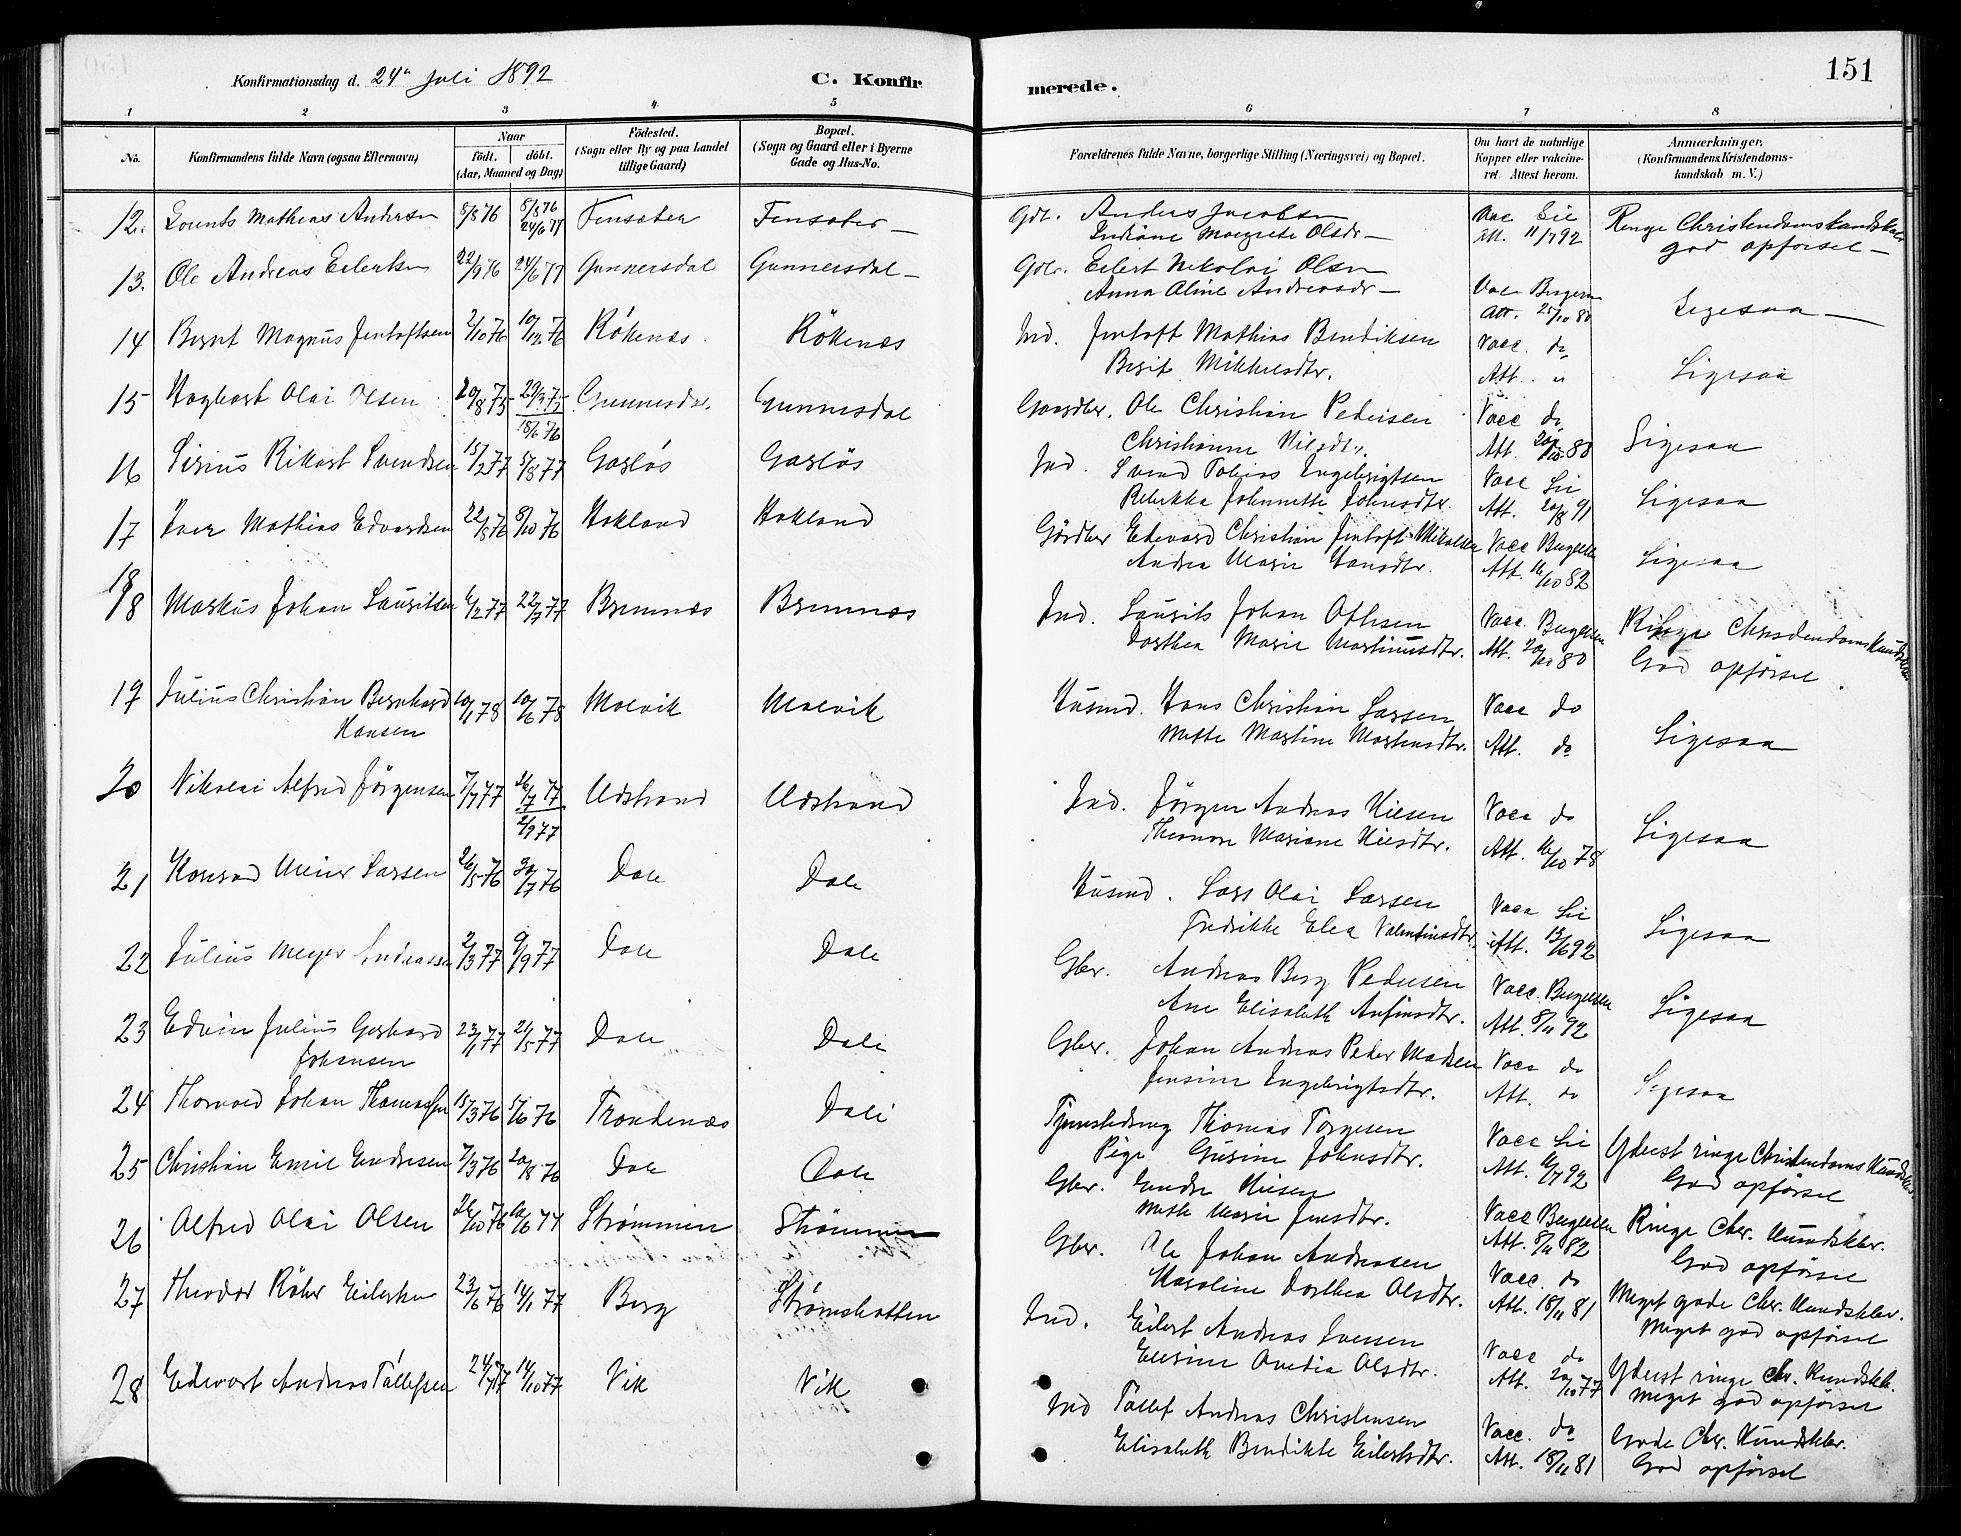 Konfirmationsdag d. 24de Juli 1892
C. Konfir
merede.
151
1 2 3 4 5 6 7 8
No.
Konfirmandens fulde Navn (ogsaa Efternavn)
Naar
födt. döbt.
(Aar, Maaned og Dag)
Födested.
(Sogn eller By og paa Landet
tillige Gaard)
Bopæl.
(Sogn og Gaard eller i Byerne
Gade og Hus-No.
Forældrenes fulde Navne, borgerlige Stilling (Næringsvei) og Bopæl.
Om havt de naturlige
Kopper eller vakcine-
ret. Attest herom.
Anmærkninger.
(Konfirmandens Kristendoms-
kundskab m. V.)
12. Lorents Mathias Andersen 8/8 76 8/8 76 24/6 77 Finsæter Finsæter — Gdbr. Anders Jacobsen Vac Lie Ringe Christendomskundskab
Indiane Margrete Olsdr — Att. 11/7 92 god opførsel —
13. Ole Andreas Eilertsen 22/9 76 24/6 77 Gunnersdal Gunnersdal — Gdbr. Eilert Nikolai Olsen
Anna Oline Andreasdr — Vac Bugesen Att. 25/10 80 Ligesaa —
14 Bernt Magnus Jentoftsen 2/10 76 10/12 76 Rökenæs Rökenæs Ind. Jentoft Mathias Bendiksen Vacc. do
Berit Mikkelsdtr. Att. " Ligesaa
15 Hagbart Olai Olsen 20/8 75 29/9 75 18/6 76 Gunnesdal Gunnesdal Gaardbr. Ole Christian Pedersen Vacc do
Christianne Nilsdtr. Att. 20/10 80 Ligesaa
16 Sirius Rikart Svendsen 15/2 77 5/8 77 Gasløs Gasløs Ind. Svend Tobias Engebrigtsen Vacc Lie
Rebekka Johannette Johnsdtr. Att. 20/8 91 Ligesaa
17 Iver Mathias Edvardsen 22/8 76 8/10 76 Hokland Hokland Gårdbr Edevard Christian Jentoft Mikalsen Vacc Bugesen
Andrea Marie Hansdtr. Att. 16/10 82 Ligesaa
18 Markus Johan Lauritsen 6/2 77 22/7 77 Bremnæs Bremnæs Ind. Laurits Johan Ottesen Vacc. Bugesen Ringe Christendomskundskab
Dorthea Marie Martinusdtr. Att. 20/10 80 God opførsel.
19 Julius Christian Bernhard 10/1 78 10/6 78 Molvik Molvik Husmd. Hans Christian Larsen Vacc do
Hansen Mette Martine Martensdtr. Att. do Ligesaa
20 Nikolai Alfred Jörgensen 7/7 77 26/7 77 2/9 77 Udstrand Udstrand Ind. Jörgen Andreas Nilsen Vacc do
Theonore Mariane Nilsdtr. Att. 16/10 78 Ligesaa
21 Konrad Meier Larsen 26/5 76 30/7 76 Dale Dale Husmd. Lars Olai Larsen Vacc Lie
Fredrikke Elea Valentinsdtr. Att. 13/6 92 Ligesaa
22 Julius Meyer Andreassen 2/3 77 9/9 77 Dale Dale Gbr. Andreas Berg Pedersen Vacc. Bugesen
Ane Elisabeth Anfinsdtr. Att. 8/11 92 Ligesaa
23 Edvin Julius Gerhard 23/1 77 21/5 77 Dale Dale Gbr. Johan Andreas Peder Madsen Vacc do
Johansen Jensine Engebrigtsdtr. Att. do Ligesaa
24 Thorvald Johan Thomassen 15/3 76 5/6 76 Trondenæs Dale Tjenestedreng Thomas Torgersen Vacc Lie Yderst ringe Christendomskundskab
Pige Gusine Johnsdtr. Att. 6/7 92 God opførsel
25 Christian Emil Endresen 7/3 76 20/8 76 Dale Dale Gbr. Endre Nilsen Vacc Bugesen Ringe Chr. Kundskber.
Mette Marie Jensdtr. Att. 8/11 82 God opførsel
26 Alfred Olai Olsen 26/10 76 10/6 77 Strømmen Strømmen Gbr. Ole Johan Andreasen Vacc. do Meget gode Chr. Kundskber.
Karoline Dorthea Olsdtr. Att. 18/11 81 Meget god opførsel
27 Theodor Röhr Eilertsen 23/6 76 14/1 77 Berg Strømsbotten Ind. Eilert Andreas Iversen Vacc do Yderst ringe Chr. Kundskb.
Elerine Ovedia Olsdtr. Att. 20/10 77 Meget god opførsel
28 Edevart Andreas Tollefsen 24/7 77 14/10 77 Vik Vik Ind Tollef Andreas Christensen Vacc. do Gode Chr. Kundskber.
Elisabeth Bendikte Eilertsdtr. Att. 18/11 81 God opførsel